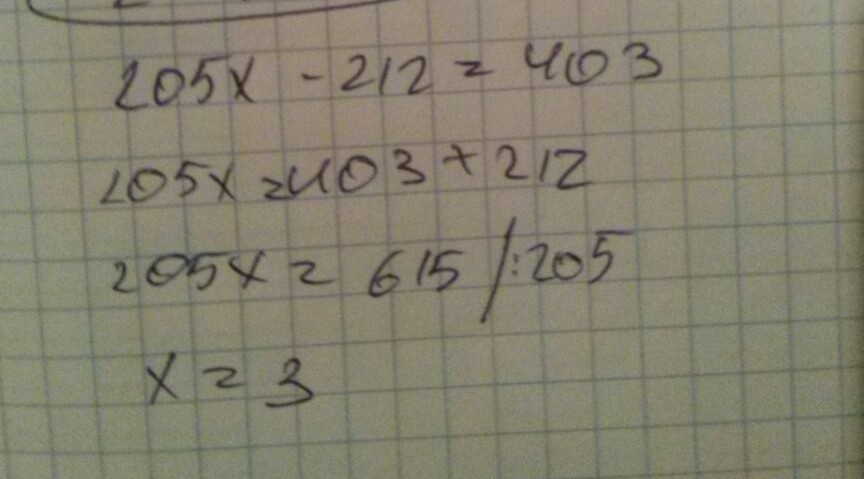 205x - 212 = 403
205x = 403 + 212
205x = 615 /:205
x = 3